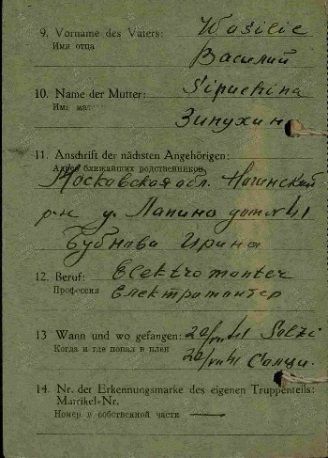 9. Vorname des Vaters: Wasilie
Имя отца Василий
10. Name der Mutter: Sipuchina
Имя мат Зипухин
11. Anschrift der nächsten Angehörigen:
Адрес ближайших родственников
Московская обл. Ногинский
р-н Лапино дом №1
Бубнова Ирина
12. Beruf: Elektromonter
Профессия Електромонтер
13 Wann und wo gefangen: 41 Solzi
Когда и где попал в плен 41 Солци.
14. Nr. der Erkennungsmarke des eigenen Truppenteils:
Marikel-Nr.
Номер в собственной части —